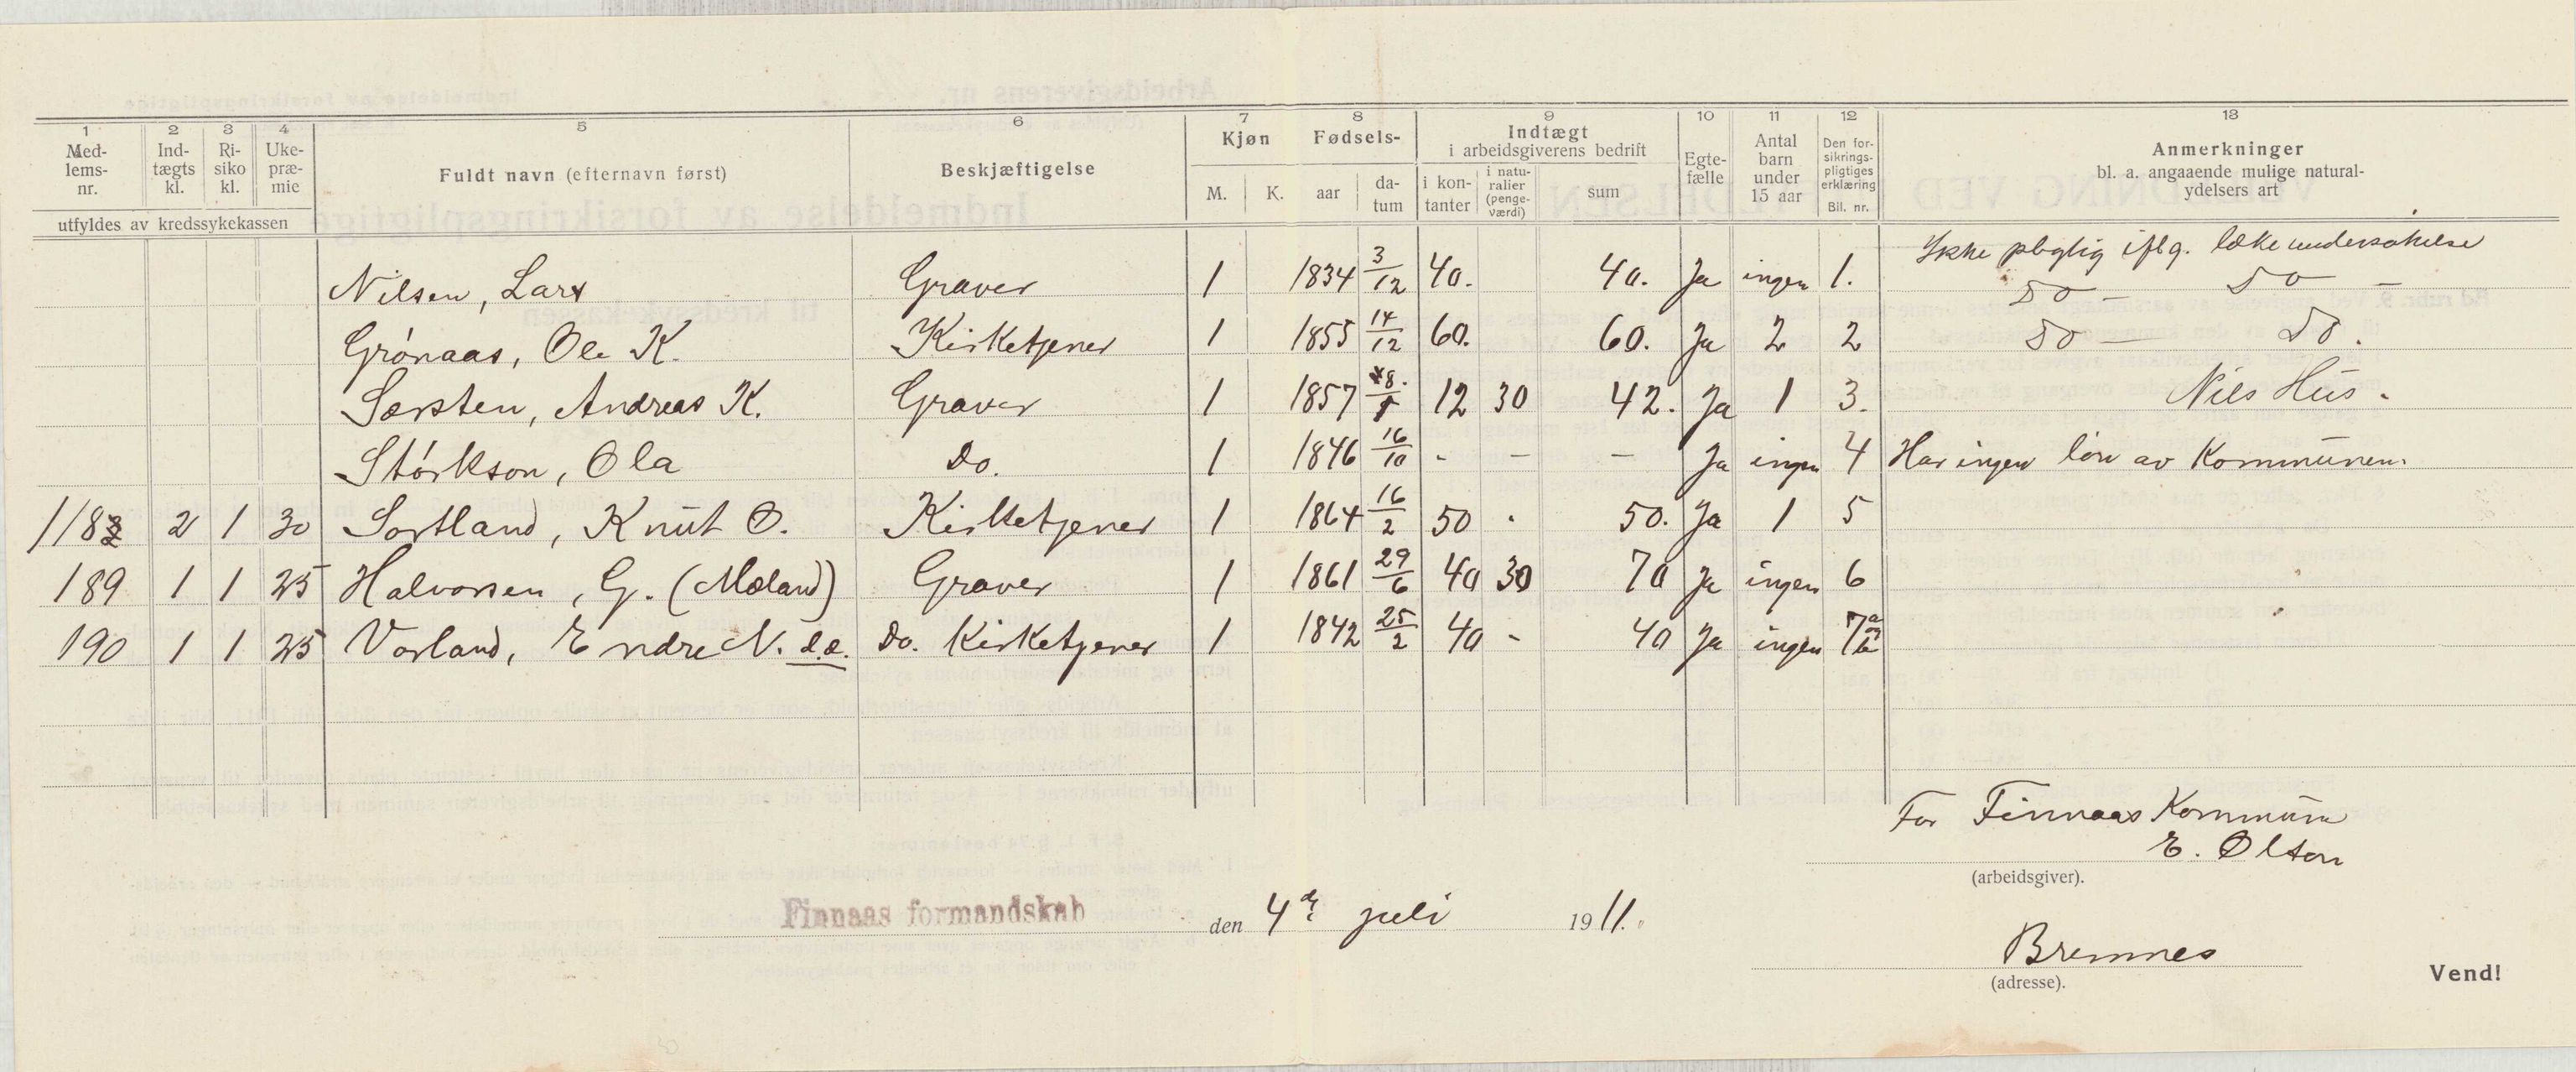 1 2 3 4 5 6 7 8 9 10 11 12 13
Med-lems-nr. Ind-tægts kl. Ri-siko kl. Uke-præ-mie Fuldt navn (efternavn først) Beskjæftigelse Kjøn Fødsels- Indtægt i arbeidsgiverens bedrift Egte-fælle Antal barn under 15 aar Den for-sikrings-pligtiges erklæring Bil. nr. Anmerkninger bl. a. angaaende mulige natural-ydelsers art
utfyldes av kredssykekassen M. K. aar da-tum i kon-tanter i natu-ralier (penge-værdi) sum
Nilsen, Lars Graver 1 1834 3/12 40. 40. Ja ingen 1. Ikke pligtig iflg. lækeundersøkelse
Grønaas, Ole K. Kirketjener 1 1855 14/12 60. 60. Ja 2 2 Do — Do —
Særsten, Andreas K. Graver 1 1857 12 30 42. Ja 1 3. Do — Do.
Nils Hus.
Størkson, Ola Do. 1 1846 16/10 - - - Ja ingen 4 Har ingen løn av Kommunen.
2 1 30 Sortland, Knut O. Kirketjener 1 1864 16/2 50 . 50. Ja 1 5
189 1 1 25 Halvorsen, G. (Mæland) Graver 1 1861 29/6 40 30 70 Ja ingen 6
190 1 1 25 Vorland, Endre N. d.e. Do. Kirketjener 1 1842 25/2 40 - 40 Ja ingen 7 a b
For Finnaas Kommune
E. Olsen
(arbeidsgiver).
Finnaas formandskab den 4de juli 1911.
Bremnes
(adresse).
Vend!